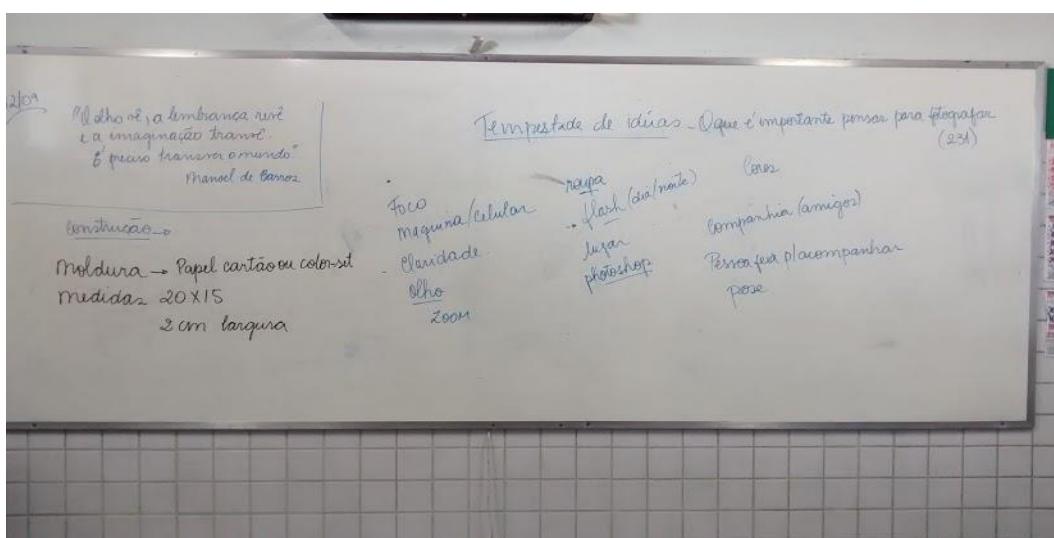 2/09
"O olho vê, a lembrança revê
e a imaginação transvê.
É preciso transver o mundo."
Manoel de Barros
Construção
Moldura → Papel cartão ou color-set
Medidas 20X15
2 cm largura
Tempestade de idéias - O que é importante pensar para fotografar
(231)
Foco
maquina/celular
Claridade
Olho
ZOOM
roupa
flash (dia/noite)
lugar
photoshop
Cores
Companhia (amigos)
Pessoa feia p/acompanhar
pose